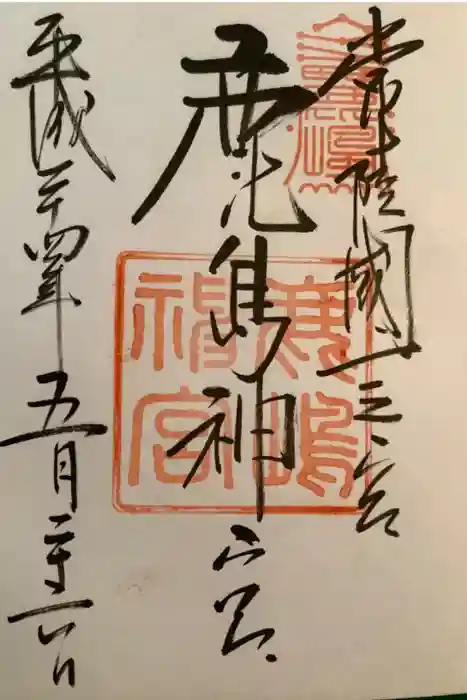 常陸國一之宮
鹿島神宮
平成二十四年五月二十六日
鹿嶋神宮